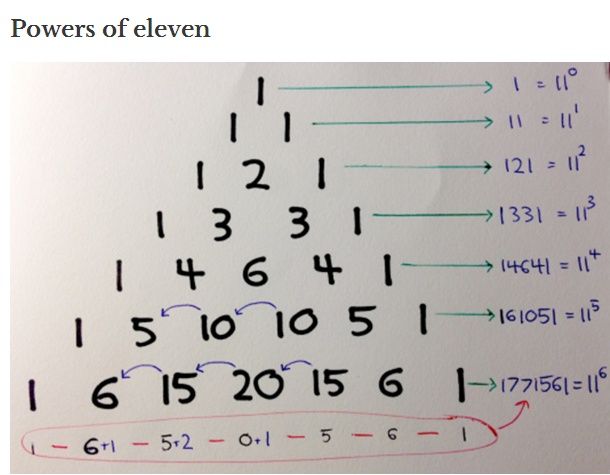 Powers of eleven
1 → 1 = 11⁰
1 1 → 11 = 11¹
1 2 1 → 121 = 11²
1 3 3 1 → 1331 = 11³
1 4 6 4 1 → 14641 = 11⁴
1 5 10 10 5 1 → 161051 = 11⁵
1 6 15 20 15 6 1 → 1771561 = 11⁶
1 – 6+1 – 5+2 – 0+1 – 5 – 6 – 1